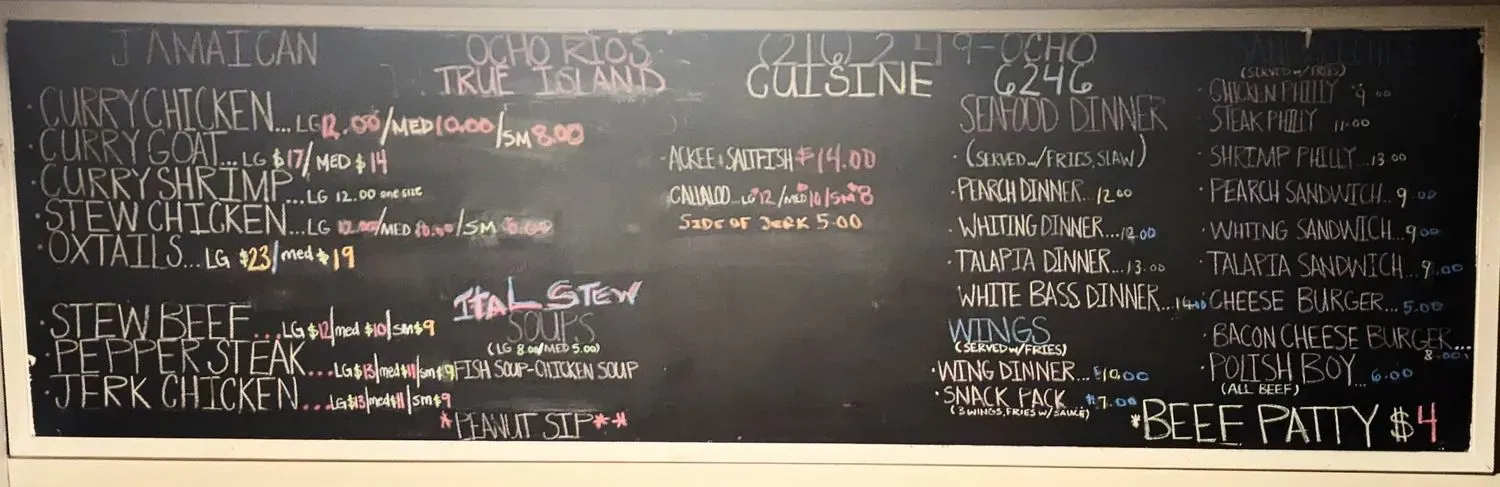 JAMAICAN
OCHO RIOS
TRUE ISLAND
(216) 249-OCHO
CUISINE 6246
·CURRY CHICKEN...LG 12.00/MED 10.00/SM 8.00
·CURRY GOAT...LG $17/MED $14
·CURRY SHRIMP...LG 12.00 one size
·STEW CHICKEN...LG 12.00/MED 10.00/SM 8.00
·OXTAILS...LG $23/med $19
·STEW BEEF...LG $12/med $10/sm $9
·PEPPER STEAK...LG $13/med $11/sm $9
·JERK CHICKEN...LG $13/med $11/sm $9
ITAL STEW
SOUPS
(LG 8.00/MED 5.00)
FISH SOUP-CHICKEN SOUP
*PEANUT SIP**
·ACKEE & SALTFISH $14.00
CALLALOO...LG $12/MED $10/SM $8
SIDE OF JERK 5.00
SEAFOOD DINNER
·(SERVED w/FRIES, SLAW)
·PEARCH DINNER...12.00
·WHITING DINNER...12.00
·TALAPIA DINNER...13.00
WHITE BASS DINNER...14.00
WINGS
(SERVED w/FRIES)
·WING DINNER...$10.00
·SNACK PACK...$7.00
(3 WINGS, FRIES W/SAUCE)
(SERVED w/FRIES)
·CHICKEN PHILLY 9.00
·STEAK PHILLY 11.00
·SHRIMP PHILLY...13.00
·PEARCH SANDWICH...9.00
·WHITING SANDWICH...9.00
·TALAPIA SANDWICH...9.00
·CHEESE BURGER...5.00
·BACON CHEESE BURGER...
8.00
·POLISH BOY...6.00
(ALL BEEF)
*BEEF PATTY $4